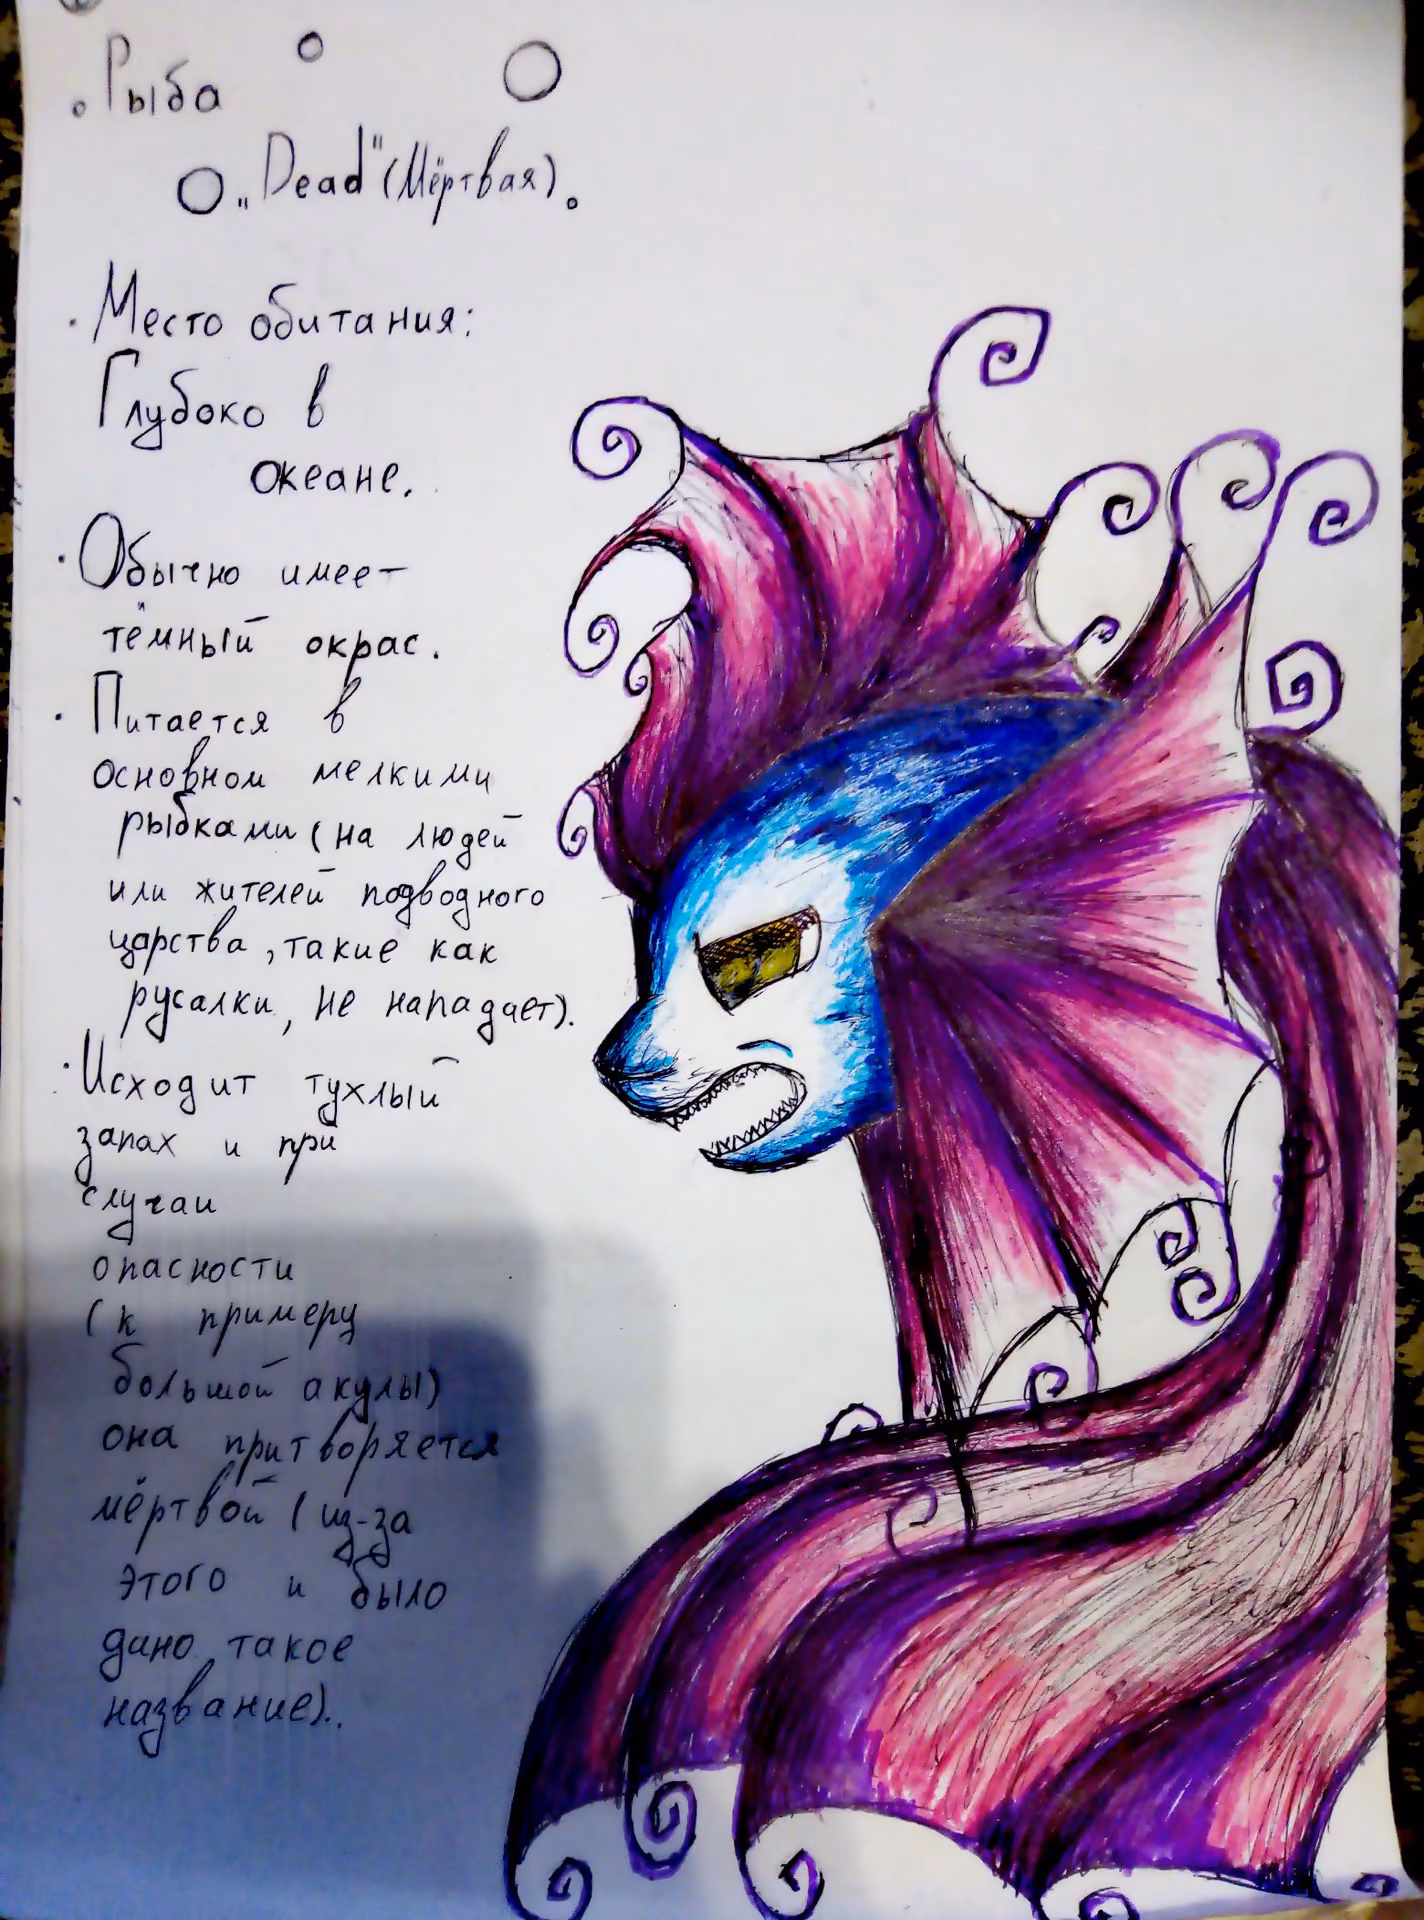 Рыба
„Dead" (Мёртвая).
· Место обитания:
Глубоко в
океане.
· Обычно имеет
тёмный окрас.
· Питается в
основном мелкими
рыбками (на людей
или жителей подводного
царства, такие как
русалки, не нападает).
· Исходит тухлый
запах и при
случаи
опасности
(к примеру
большой акулы)
она притворяется
мёртвой (из-за
этого и было
дано такое
название)..